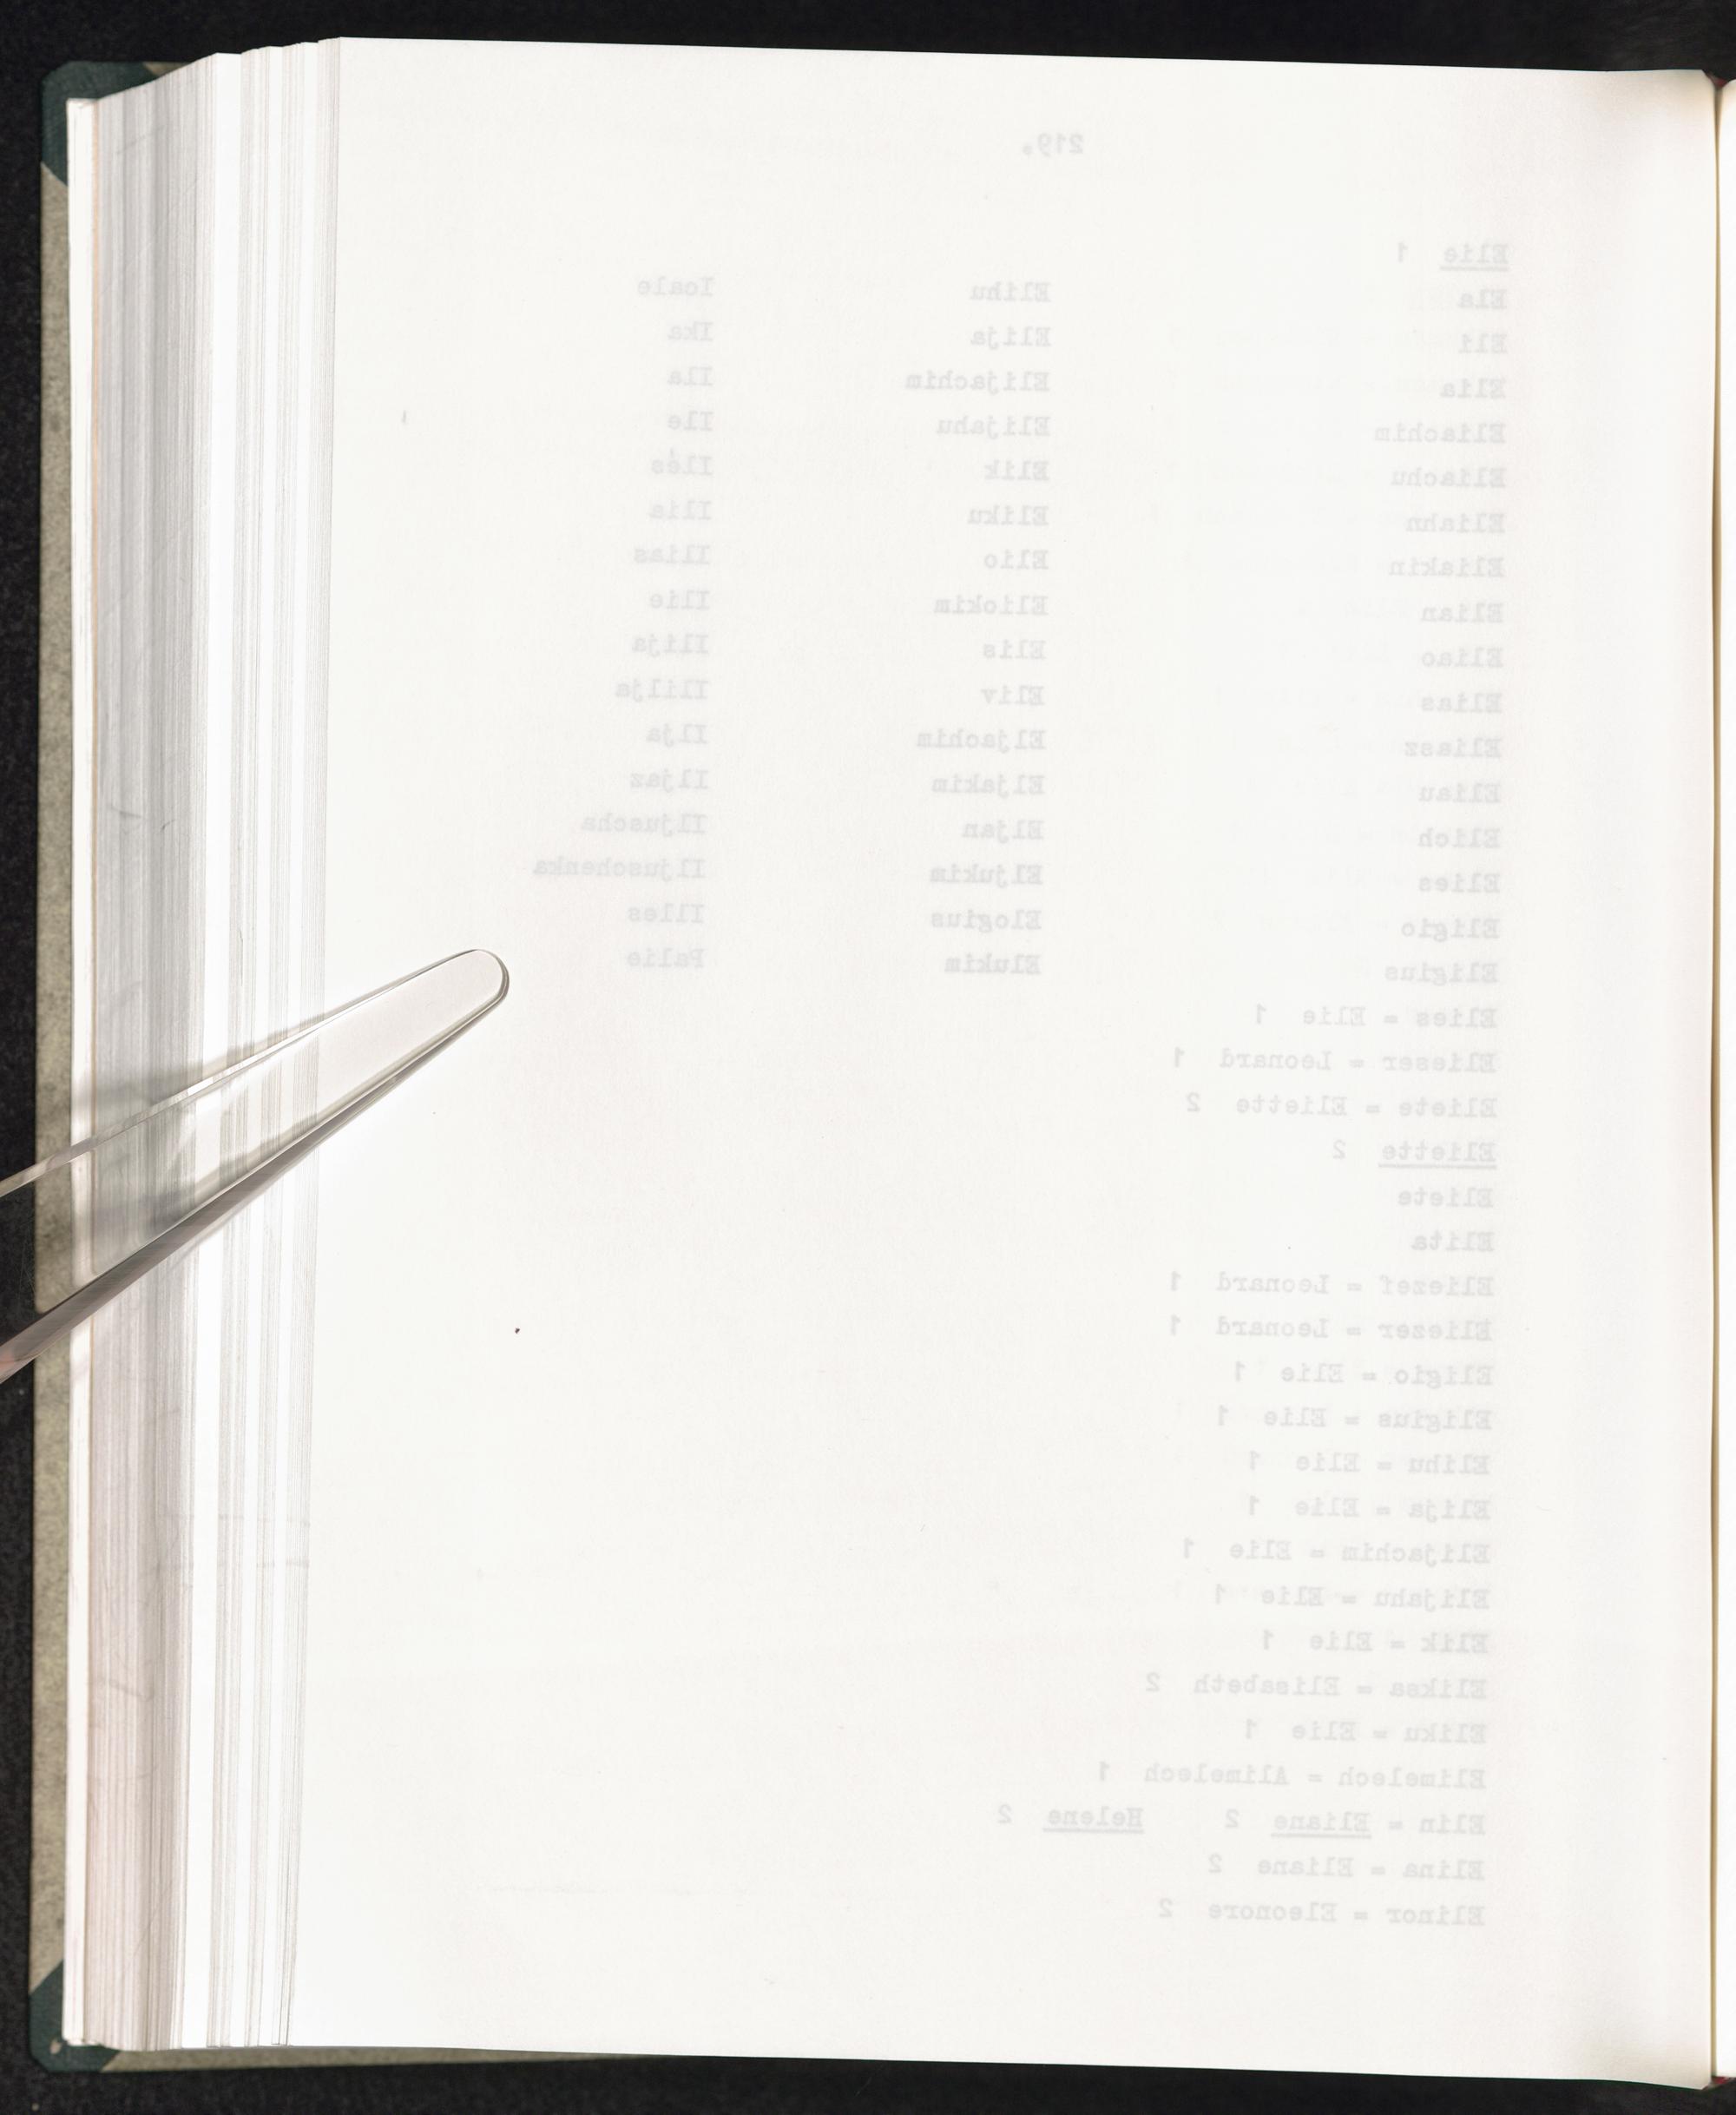 219.
Elie 1
Ela Elihu Icale
Eli Elija Ika
Elia Elijachim Ila
Eliachim Elijahu Ile
Eliachu Elik Ilés
Eliahn Eliku Ilia
Eliakin Elio Ilias
Elian Eliokim Ilie
Eliao Elis Ilija
Elias Eliv Ililja
Eliasz Eljachim Ilja
Eliau Eljakim Iljaz
Elich Eljan Iljuscha
Elies Eljukim Iljuschenka
Eligio Elogius Illes
Eligius Elukim Palie
Elies = Elie 1
Elieser = Leonard 1
Eliete = Eliette 2
Eliette 2
Eliete
Elita
Eliezef = Leonard 1
Eliezer = Leonard 1
Eligio = Elie 1
Eligius = Elie 1
Elihu = Elie 1
Elija = Elie 1
Elijachim = Elie 1
Elijahu = Elie 1
Elik = Elie 1
Eliksa = Elisabeth 2
Eliku = Elie 1
Elimelech = Alimelech 1
Elin = Eliane 2 Helene 2
Elina = Eliane 2
Elinor = Eleonore 2